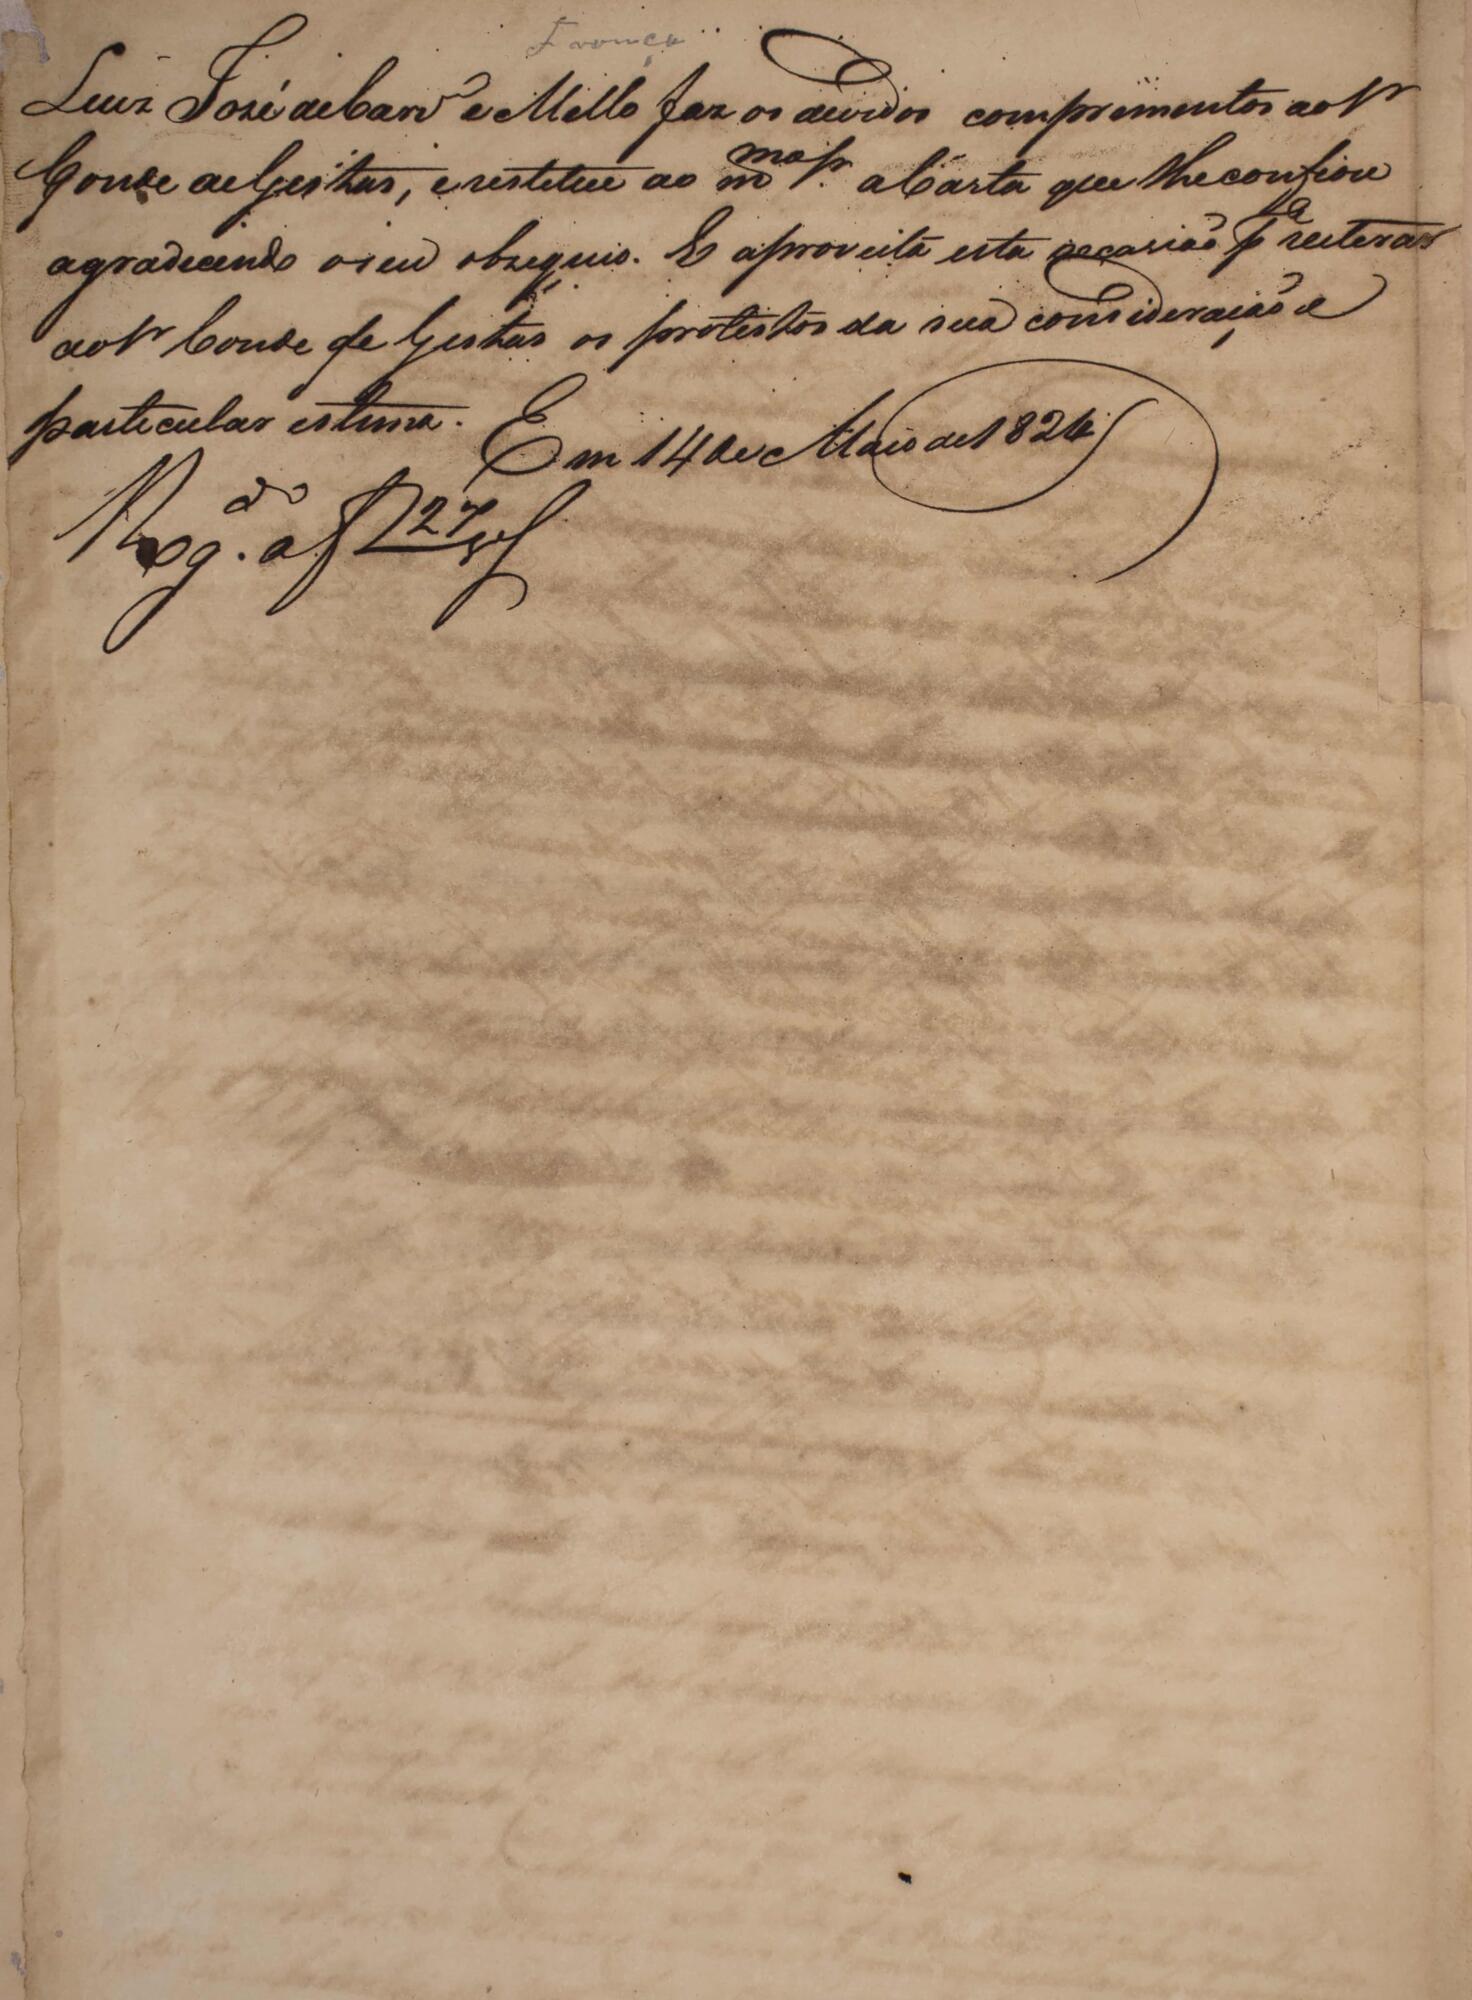 França
Luiz José de Carv.º e Mello faz os devidos comprimentos ao Sr
Conde de Gestas, e restitue ao m.mo Sr. a Carta que lhe confiou
agradecendo o seu obzequio. E aproveita esta occasião p.a reiterar
ao Sr Conde de Gestas os protestos da sua consideração e
particular estima. Em 14 de Maio de 1824
Reg.do a f 27